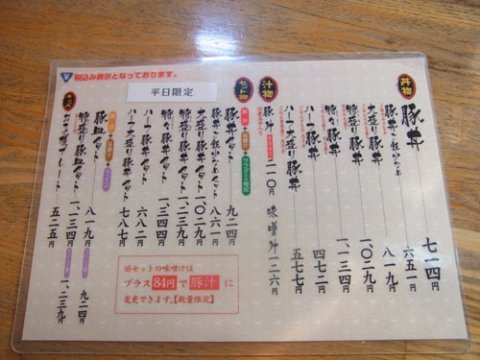 税込み表示となっております。
丼物
豚丼 七一四円
豚丼・軽いめ 六五一円
大盛り豚丼 八一九円
特盛り豚丼 一、〇二九円
特な豚丼 一、一三四円
ハーフ豚丼 四七二円
ハーフ大盛り豚丼 五七七円
汁物
豚汁 二一〇円
味噌汁 一二六円
セット物
平日限定
豚丼セット 九二四円
豚丼・軽いめセット 八六一円
大盛り豚丼セット 一、〇二九円
特盛り豚丼セット 一、二三九円
特な豚丼セット 一、三四四円
ハーフ豚丼セット 六八二円
ハーフ大盛り豚丼セット 七八七円
豚皿セット 八一九円 九二四円
特盛り豚皿セット 一、一三四円 一、二三九円
五二五円
※セットの味噌汁は
プラス84円で豚汁に
変更できます。【数量限定】